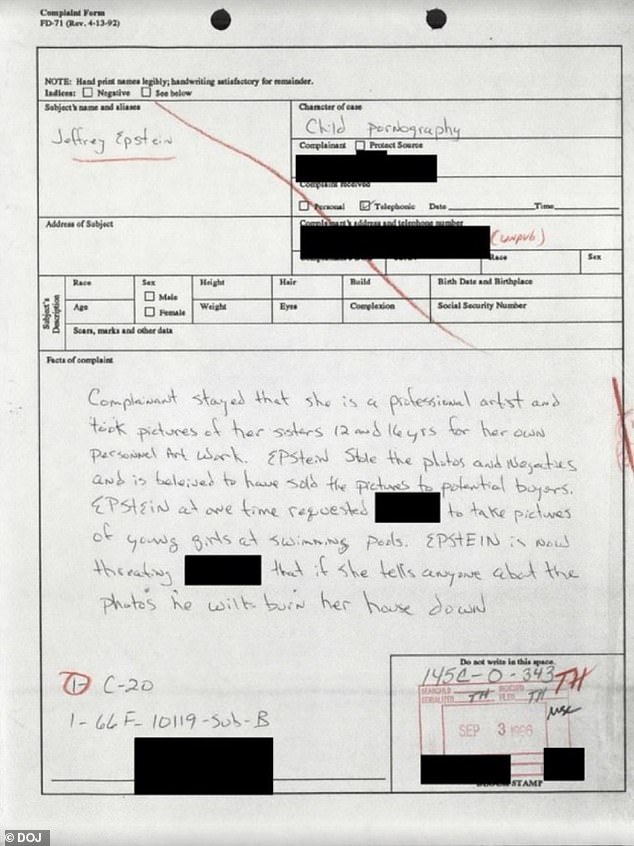 Complaint Form
FD-71 (Rev. 4-13-92)
NOTE: Hand print names legibly; handwriting satisfactory for remainder.
Indices: Negative See below
Subject's name and aliases
Jeffrey Epstein
Character of case
Child pornography
Complainant Protect Source
Complaint received
Personal Telephonic Date Time
Address of Subject
Complainant's address and telephone number
(unpub)
Race Sex
Subject's Description
Race Sex Height Hair Build Birth Date and Birthplace
Male
Age Female Weight Eyes Complexion Social Security Number
Scars, marks and other data
Facts of complaint
Complainant stayed that she is a professional artist and
took pictures of her sisters 12 and 16 yrs for her own
personnel Art work. EPstein Stole the photos and Negatives
and is beleived to have sold the pictures to potential buyers.
EPSTEIN at one time requested to take pictures
of young girls at swimming pools. EPSTEIN is now
threating that if she tells anyone about the
photos he will burn her house down
Do not write in this space.
145C-0-343 TH
1- C-20
SERIALIZED TH FILED TH
1- 66F-10119-Sub-B
SEP 3 1996
STAMP
© DOJ